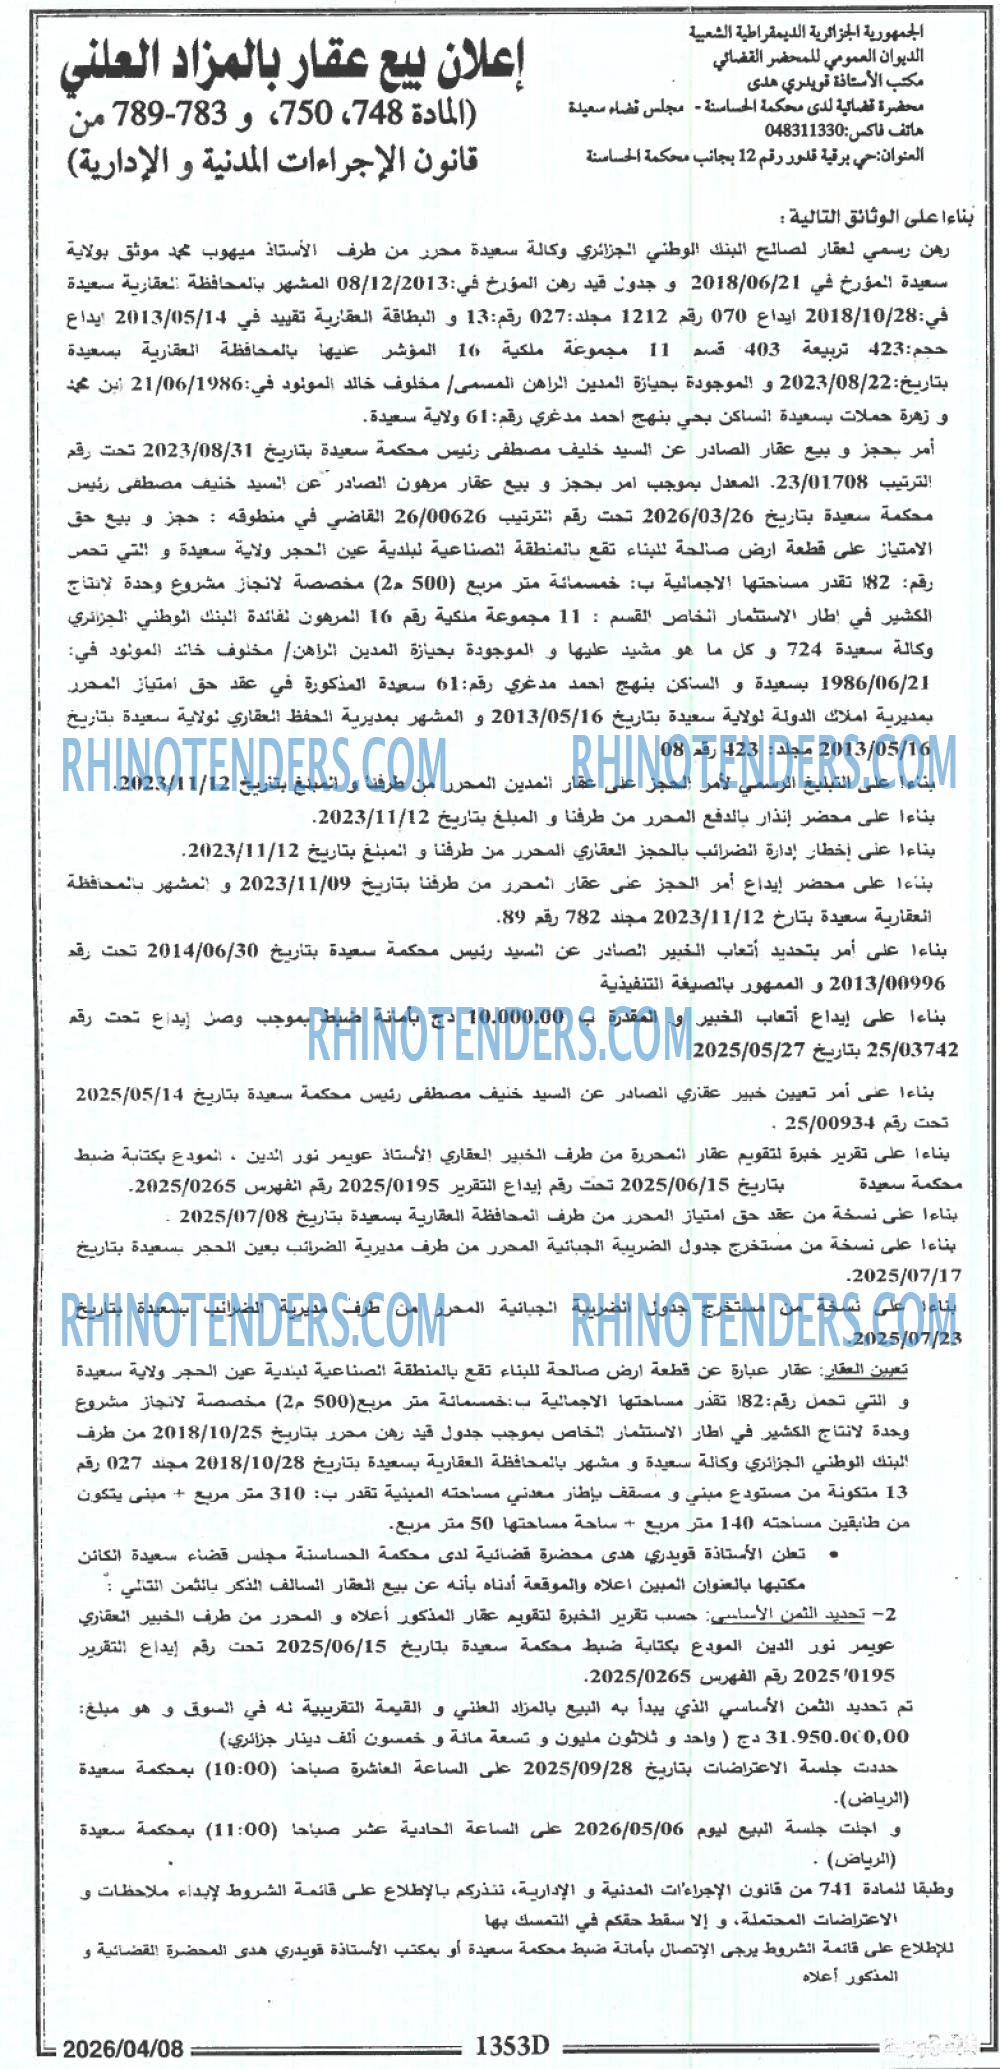 الجمهورية الجزائرية الديمقراطية الشعبية
الديوان العمومي للمحضر القضائي
مكتب الأستاذة قويدري هدى
محضرة قضائية لدى محكمة الحساسنة - مجلس قضاء سعيدة
هاتف فاكس:048311330
العنوان:حي برقية قدور رقم 12 بجانب محكمة الحساسنة
إعلان بيع عقار بالمزاد العلني
(المادة 748، 750، و 783-789 من
قانون الإجراءات المدنية و الإدارية)
بناءا على الوثائق التالية :
رهن رسمي لعقار لصالح البنك الوطني الجزائري وكالة سعيدة محرر من طرف الأستاذ ميهوب محمد موثق بولاية
سعيدة المؤرخ في 2018/06/21 و جدول قيد رهن المؤرخ في:08/12/2013 المشهر بالمحافظة العقارية سعيدة
في:2018/10/28 ايداع 070 رقم 1212 مجلد:027 رقم:13 و البطاقة العقارية تقييد في 2013/05/14 ايداع
حجم:423 تربيعة 403 قسم 11 مجموعة ملكية 16 المؤشر عليها بالمحافظة العقارية بسعيدة
بتاريخ:2023/08/22 و الموجودة بحيازة المدين الراهن المسمى/ مخلوف خالد المولود في:21/06/1986 إبن محمد
و زهرة حملات بسعيدة الساكن بحي بنهج احمد مدغري رقم:61 ولاية سعيدة.
أمر بحجز و بيع عقار الصادر عن السيد خليف مصطفى رئيس محكمة سعيدة بتاريخ 2023/08/31 تحت رقم
الترتيب 23/01708. المعدل بموجب امر بحجز و بيع عقار مرهون الصادر عن السيد خليف مصطفى رئيس
محكمة سعيدة بتاريخ 2026/03/26 تحت رقم الترتيب 26/00626 القاضي في منطوقه : حجز و بيع حق
الامتياز على قطعة ارض صالحة للبناء تقع بالمنطقة الصناعية لبلدية عين الحجر ولاية سعيدة و التي تحمر
رقم: 182 تقدر مساحتها الاجمالية ب: خمسمائة متر مربع (500 م2) مخصصة لانجاز مشروع وحدة لإنتاج
الكشير في إطار الاستثمار الخاص القسم : 11 مجموعة ملكية رقم 16 المرهون لفائدة البنك الوطني الجزائري
وكالة سعيدة 724 و كل ما هو مشيد عليها و الموجودة بحيازة المدين الراهن/ مخلوف خالد المولود في:
1986/06/21 بسعيدة و الساكن بنهج احمد مدغري رقم:61 سعيدة المذكورة في عقد حق امتياز المحرر
بمديرية املاك الدولة لولاية سعيدة بتاريخ 2013/05/16 و المشهر بمديرية الحفظ العقاري لولاية سعيدة بتاريخ
2013/05/16 مجلد: 423 رقم 08
RHINOTENDERS.COM RHINOTENDERS.COM
بناءا على التبليغ الرسمي لأمر الحجز على عقار المدين المحرر من طرفنا و المبلغ بتاريخ 2023/11/12.
بناءا على محضر إنذار بالدفع المحرر من طرفنا و المبلغ بتاريخ 2023/11/12.
بناءا على إخطار إدارة الضرائب بالحجز العقاري المحرر من طرفنا و المبلغ بتاريخ 2023/11/12.
بناءا على محضر إيداع أمر الحجز على عقار المحرر من طرفنا بتاريخ 2023/11/09 و المشهر بالمحافظة
العقارية سعيدة بتارخ 2023/11/12 مجلد 782 رقم 89.
بناءا على أمر بتحديد أتعاب الخبير الصادر عن السيد رئيس محكمة سعيدة بتاريخ 2014/06/30 تحت رقم
2013/00996 و الممهور بالصيغة التنفيذية
بناءا على إيداع أتعاب الخبير و المقدرة ب 10.000.00 دج بأمانة ضبط بموجب وصل إيداع تحت رقم
RHINOTENDERS.COM
25/03742 بتاريخ 2025/05/27
بناءا على أمر تعيين خبير عقاري الصادر عن السيد خليف مصطفى رئيس محكمة سعيدة بتاريخ 2025/05/14
تحت رقم 25/00934 .
بناءا على تقرير خبرة لتقويم عقار المحررة من طرف الخبير العقاري الأستاذ عويمر نور الدين ، المودع بكتابة ضبط
محكمة سعيدة بتاريخ 2025/06/15 تحت رقم إيداع التقرير 2025/0195 رقم الفهرس 2025/0265.
بناءا على نسخة من عقد حق امتياز المحرر من طرف المحافظة العقارية بسعيدة بتاريخ 2025/07/08 .
بناءا على نسخة من مستخرج جدول الضريبة الجبائية المحرر من طرف مديرية الضرائب بعين الحجر بسعيدة بتاريخ
2025/07/17.
بناءا على نسخة من مستخرج جدول الضريبة الجبائية المحرر من طرف مديرية الضرائب بسعيدة بتاريخ
RHINOTENDERS.COM RHINOTENDERS.COM
2025/07/23.
تعيين العقار: عقار عبارة عن قطعة ارض صالحة للبناء تقع بالمنطقة الصناعية لبلدية عين الحجر ولاية سعيدة
و التي تحمل رقم:182 تقدر مساحتها الاجمالية ب:خمسمائة متر مربع(500 م2) مخصصة لانجاز مشروع
وحدة لانتاج الكشير في اطار الاستثمار الخاص بموجب جدول قيد رهن محرر بتاريخ 2018/10/25 من طرف
البنك الوطني الجزائري وكالة سعيدة و مشهر بالمحافظة العقارية بسعيدة بتاريخ 2018/10/28 مجلد 027 رقم
13 متكونة من مستودع مبني و مسقف بإطار معدني مساحته المبنية تقدر ب: 310 متر مربع + مبنى يتكون
من طابقين مساحته 140 متر مربع + ساحة مساحتها 50 متر مربع.
• تعلن الأستاذة قويدري هدى محضرة قضائية لدى محكمة الحساسنة مجلس قضاء سعيدة الكائن
مكتبها بالعنوان المبين اعلاه والموقعة أدناه بأنه عن بيع العقار السالف الذكر بالثمن التالي :
2- تحديد الثمن الأساسي: حسب تقرير الخبرة لتقويم عقار المذكور أعلاه و المحرر من طرف الخبير العقاري
عويمر نور الدين المودع بكتابة ضبط محكمة سعيدة بتاريخ 2025/06/15 تحت رقم إيداع التقرير
2025/0195 رقم الفهرس 2025/0265.
تم تحديد الثمن الأساسي الذي يبدأ به البيع بالمزاد العلني و القيمة التقريبية له في السوق و هو مبلغ:
31.950.000,00 دج ( واحد و ثلاثون مليون و تسعة مائة و خمسون ألف دينار جزائري)
حددت جلسة الاعتراضات بتاريخ 2025/09/28 على الساعة العاشرة صباحا (10:00) بمحكمة سعيدة
(الرياض).
و اجلت جلسة البيع ليوم 2026/05/06 على الساعة الحادية عشر صباحا (11:00) بمحكمة سعيدة
(الرياض) .
وطبقا للمادة 741 من قانون الإجراءات المدنية و الإدارية، نتذركم بالإطلاع على قائمة الشروط لإبداء ملاحظات و
الاعتراضات المحتملة، و إلا سقط حقكم في التمسك بها
للإطلاع على قائمة الشروط يرجى الإتصال بأمانة ضبط محكمة سعيدة أو بمكتب الأستاذة قويدري هدى المحضرة القضائية و
المذكور أعلاه
2026/04/08
1353D